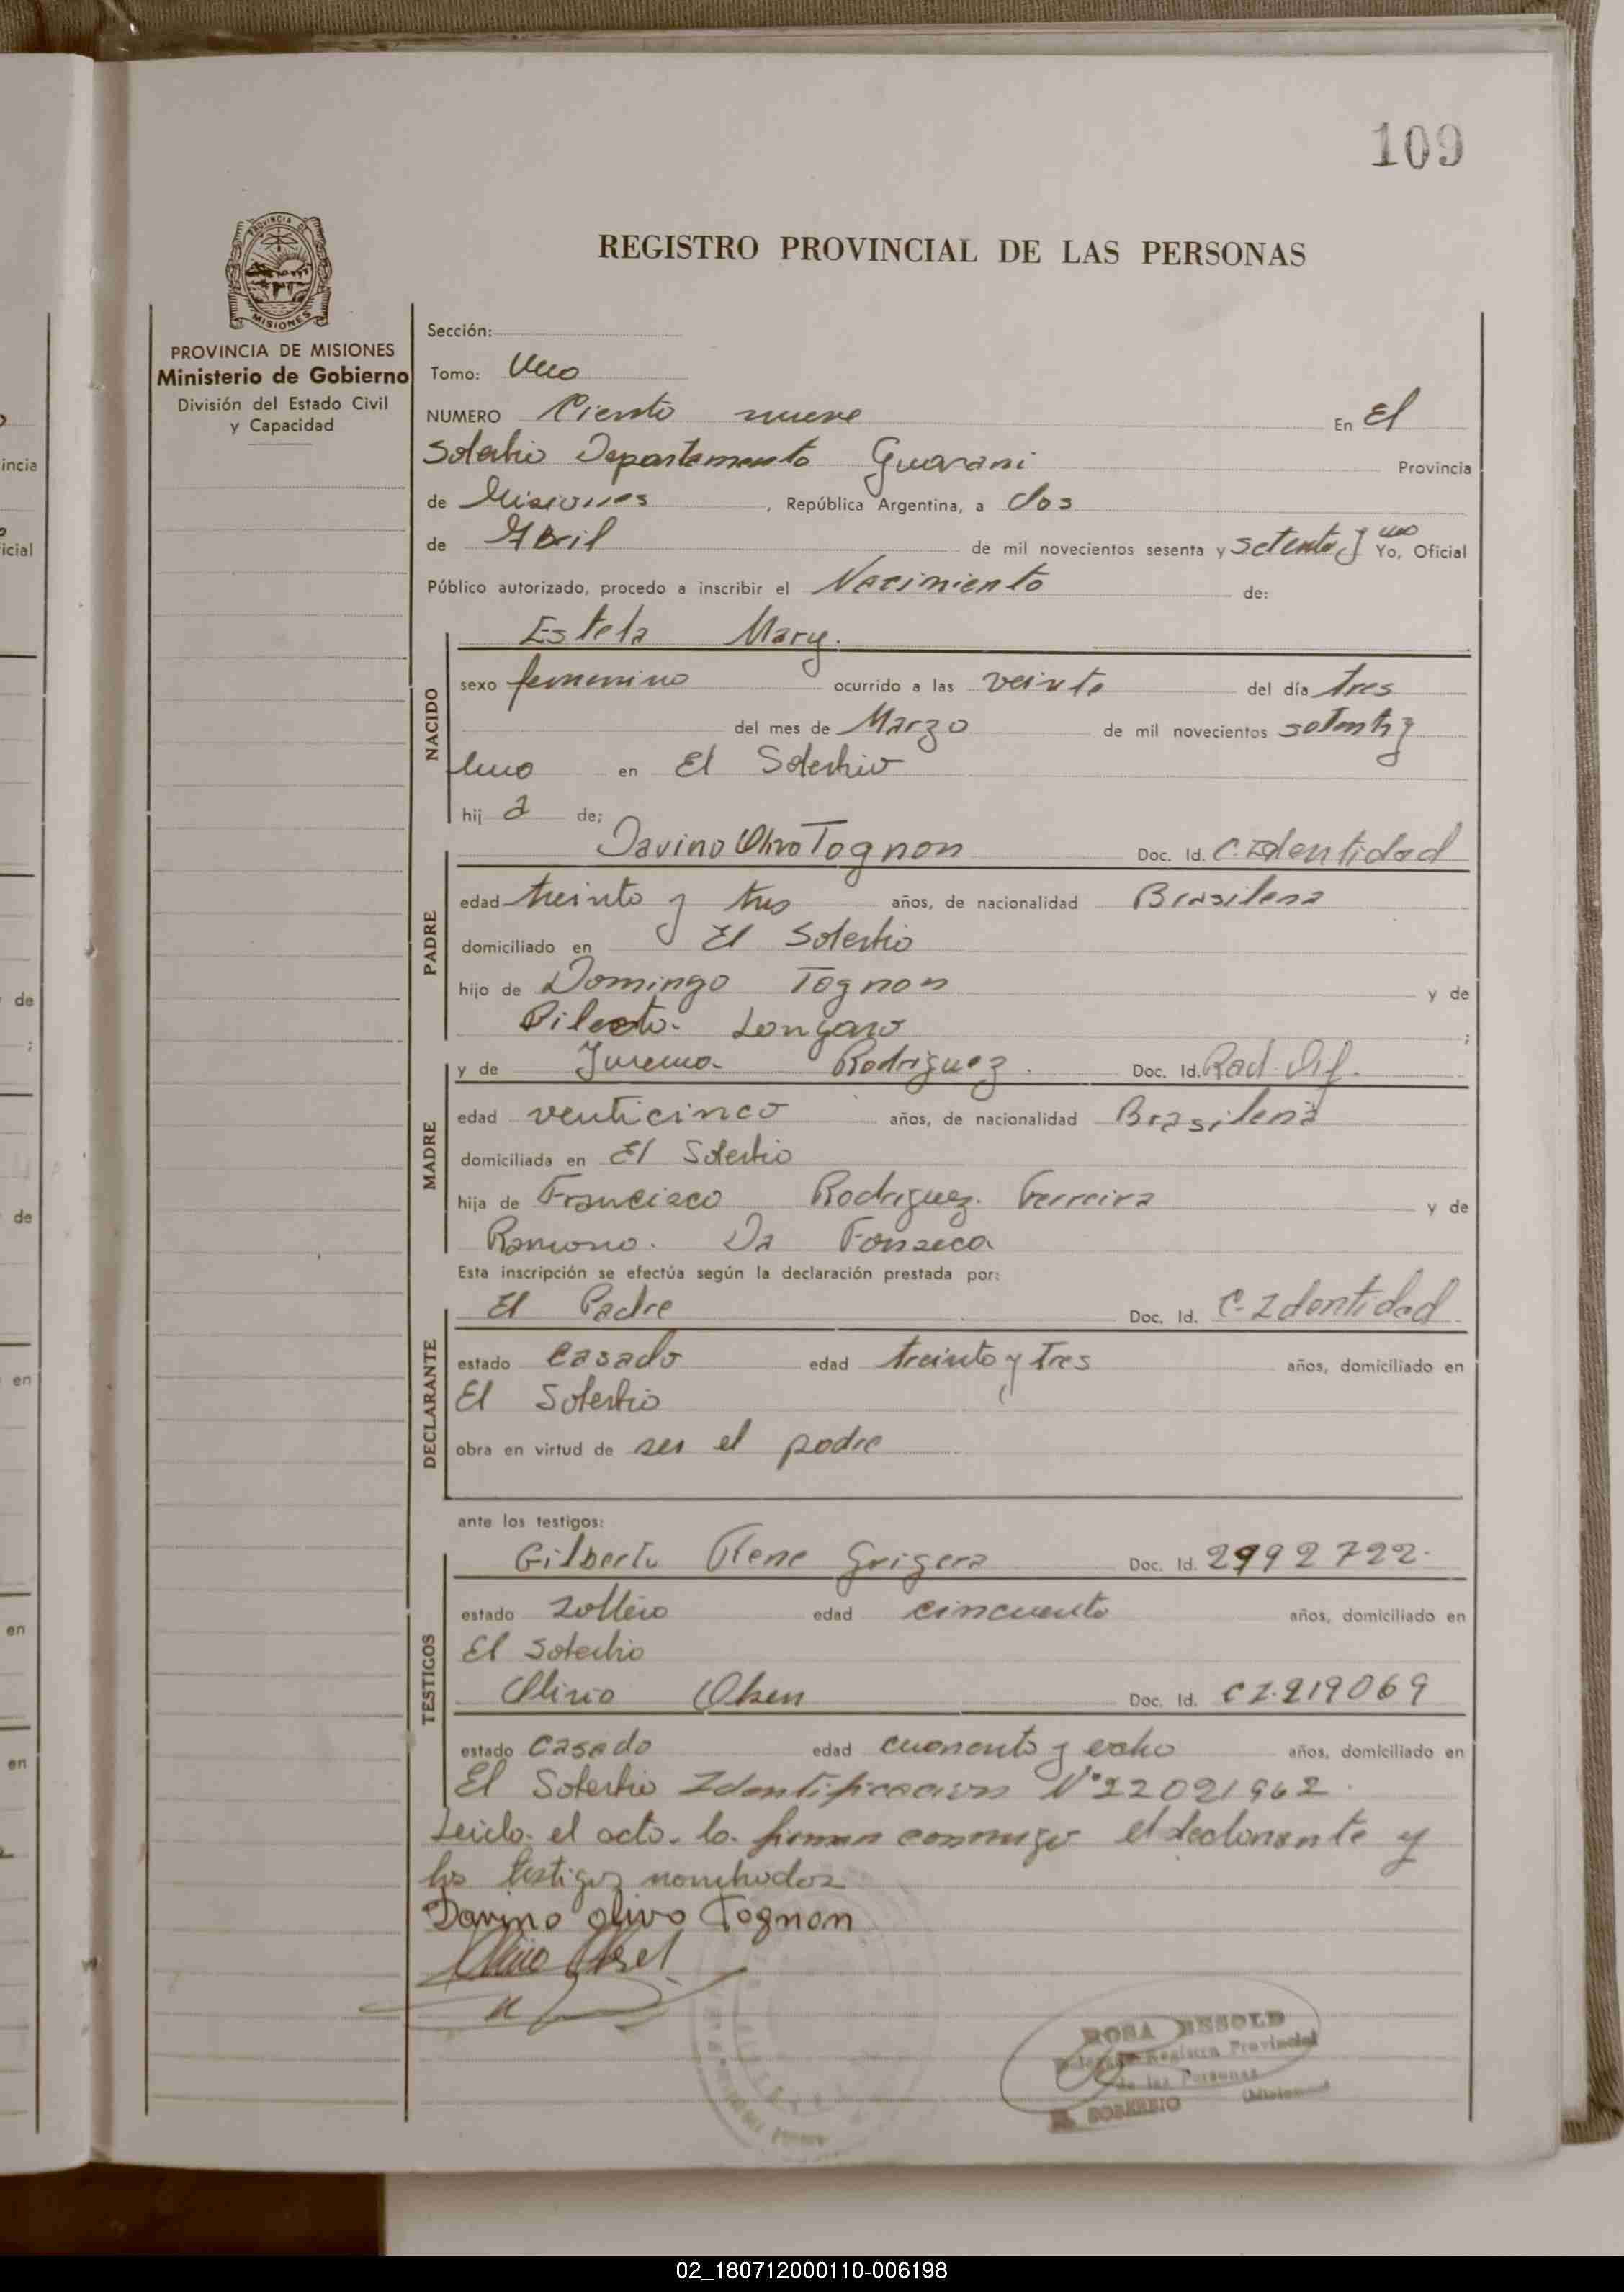 109
PROVINCIA DE MISIONES
REGISTRO PROVINCIAL DE LAS PERSONAS
PROVINCIA DE MISIONES
Ministerio de Gobierno
División del Estado Civil
y Capacidad
Sección:
Tomo: Uno
NUMERO Ciento nueve En El
Soberbio Departamento Guarani Provincia
de Misiones, República Argentina, a dos
de Abril de mil novecientos sesenta y setenta y uno Yo, Oficial
Público autorizado, procedo a inscribir el Nacimiento de:
Estela Mary.
NACIDO
sexo femenino ocurrido a las veinte del día tres
del mes de Marzo de mil novecientos setenta y
uno en El Soberbio
hij a de;
PADRE
Davino Olivo Tognon Doc. Id. C. Identidad
edad treinta y tres años, de nacionalidad Brasilena
domiciliado en El Soberbio
hijo de Domingo Tognon y de
Longaro ;
MADRE
y de Jurema Rodriguez. Doc. Id. Rad
edad venticinco años, de nacionalidad Brasilena
domiciliada en El Soberbio
hija de Francisco Rodriguez Ferreira y de
Ramona Da Fonseca
Esta inscripción se efectúa según la declaración prestada por:
DECLARANTE
El Padre Doc. Id. C- Identidad
estado casado edad treinta y Tres años, domiciliado en
El Soberbio
obra en virtud de ser el padre
ante los testigos:
TESTIGOS
Gilberto Rene Grigera Doc. Id. 2992722.
estado soltero edad cincuenta años, domiciliado en
El Soberbio
Olsen Doc. Id. CI.219069
estado casado edad cuarenta y ocho años, domiciliado en
El Soberbio Identificacion Nº
Leida el acta la firman conmigo el declarante y
los testigos nombrados
Davino olivo Tognon
ROSA BESOLD
Registro Provincial
de las Personas
EL SOBERBIO (Misiones)
incia
icial
de
;
de
en
en
en
02_180712000110-006198